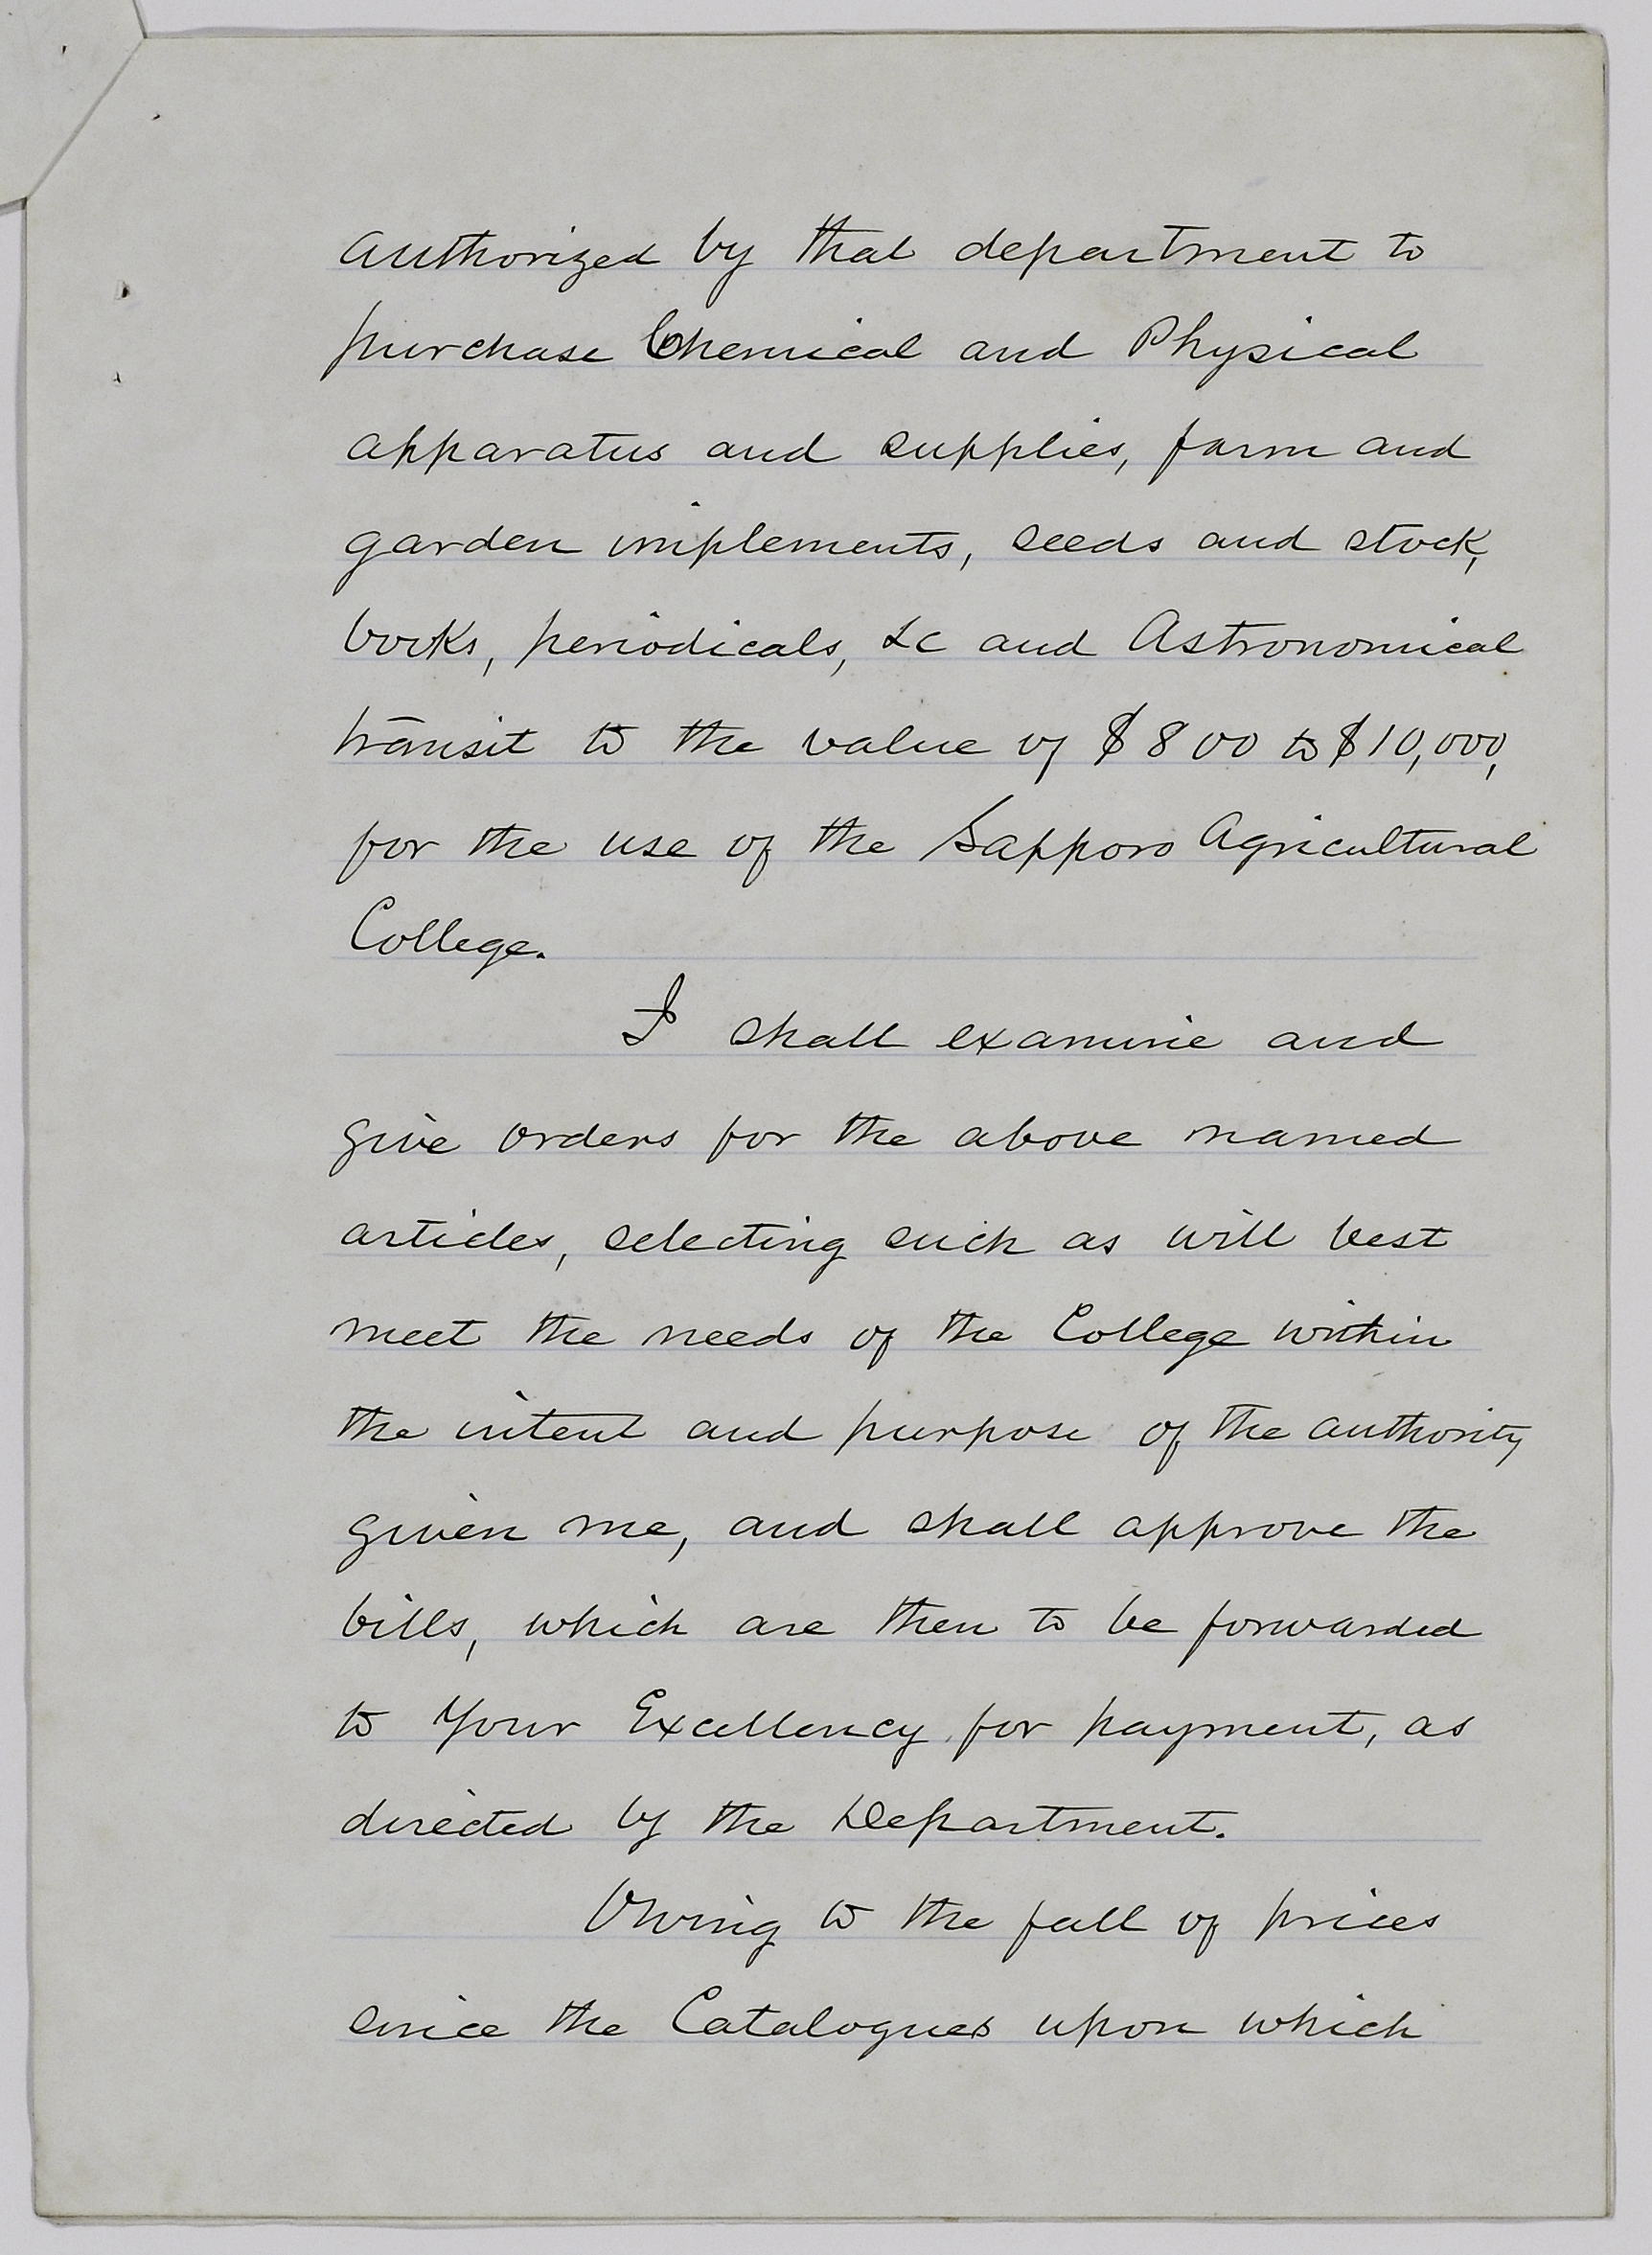 authorized by that department to
purchase Chemical and Physical
apparatus and supplies, farm and
garden implements, seeds and stock,
books, periodicals, &c and Astronomical
transit to the value of $800 to $10,000,
for the use of the Sapporo Agricultural
College.
I shall examine and
give orders for the above named
articles, selecting such as will best
meet the needs of the College within
the intent and purpose of the authority
given me, and shall approve the
bills, which are then to be forwarded
to Your Excellency for payment, as
directed by the Department.
Owing to the fall of prices
since the Catalogues upon which